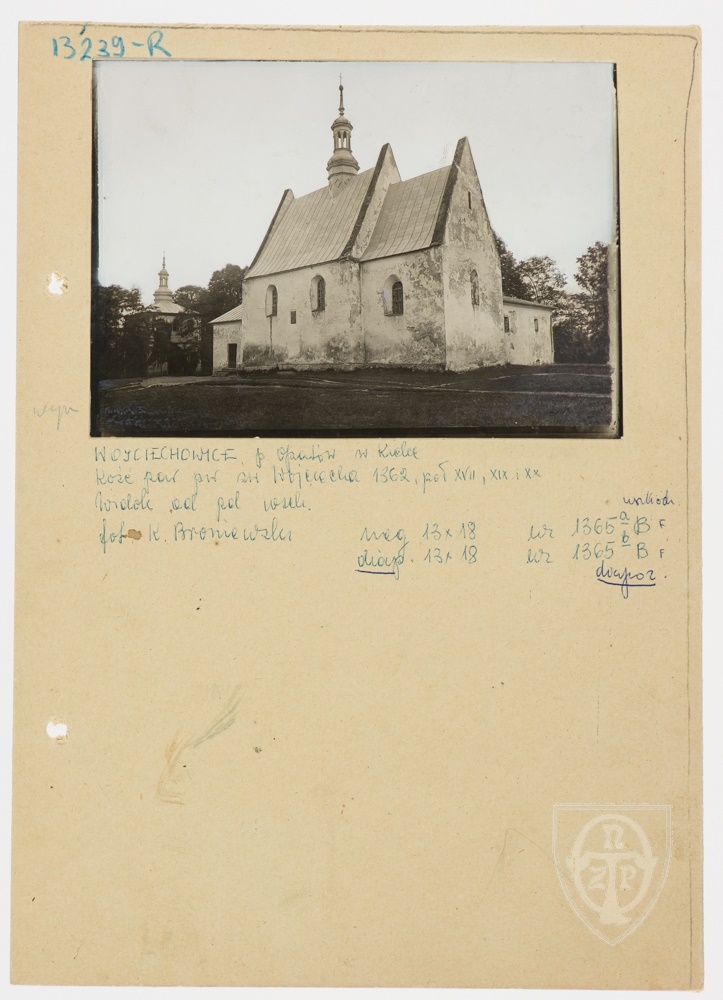 13239-R
WOJCIECHOWICE, p Opatów w Kielce
Kość par pw św Wojciecha 1362, poł XVII, XIX i XX
Widok od pd wsch.
fot K. Broniewski neg 13x18 nr 1365 a B F
diap. 13x18 nr 1365 b B F
diapoz.
TOnZP